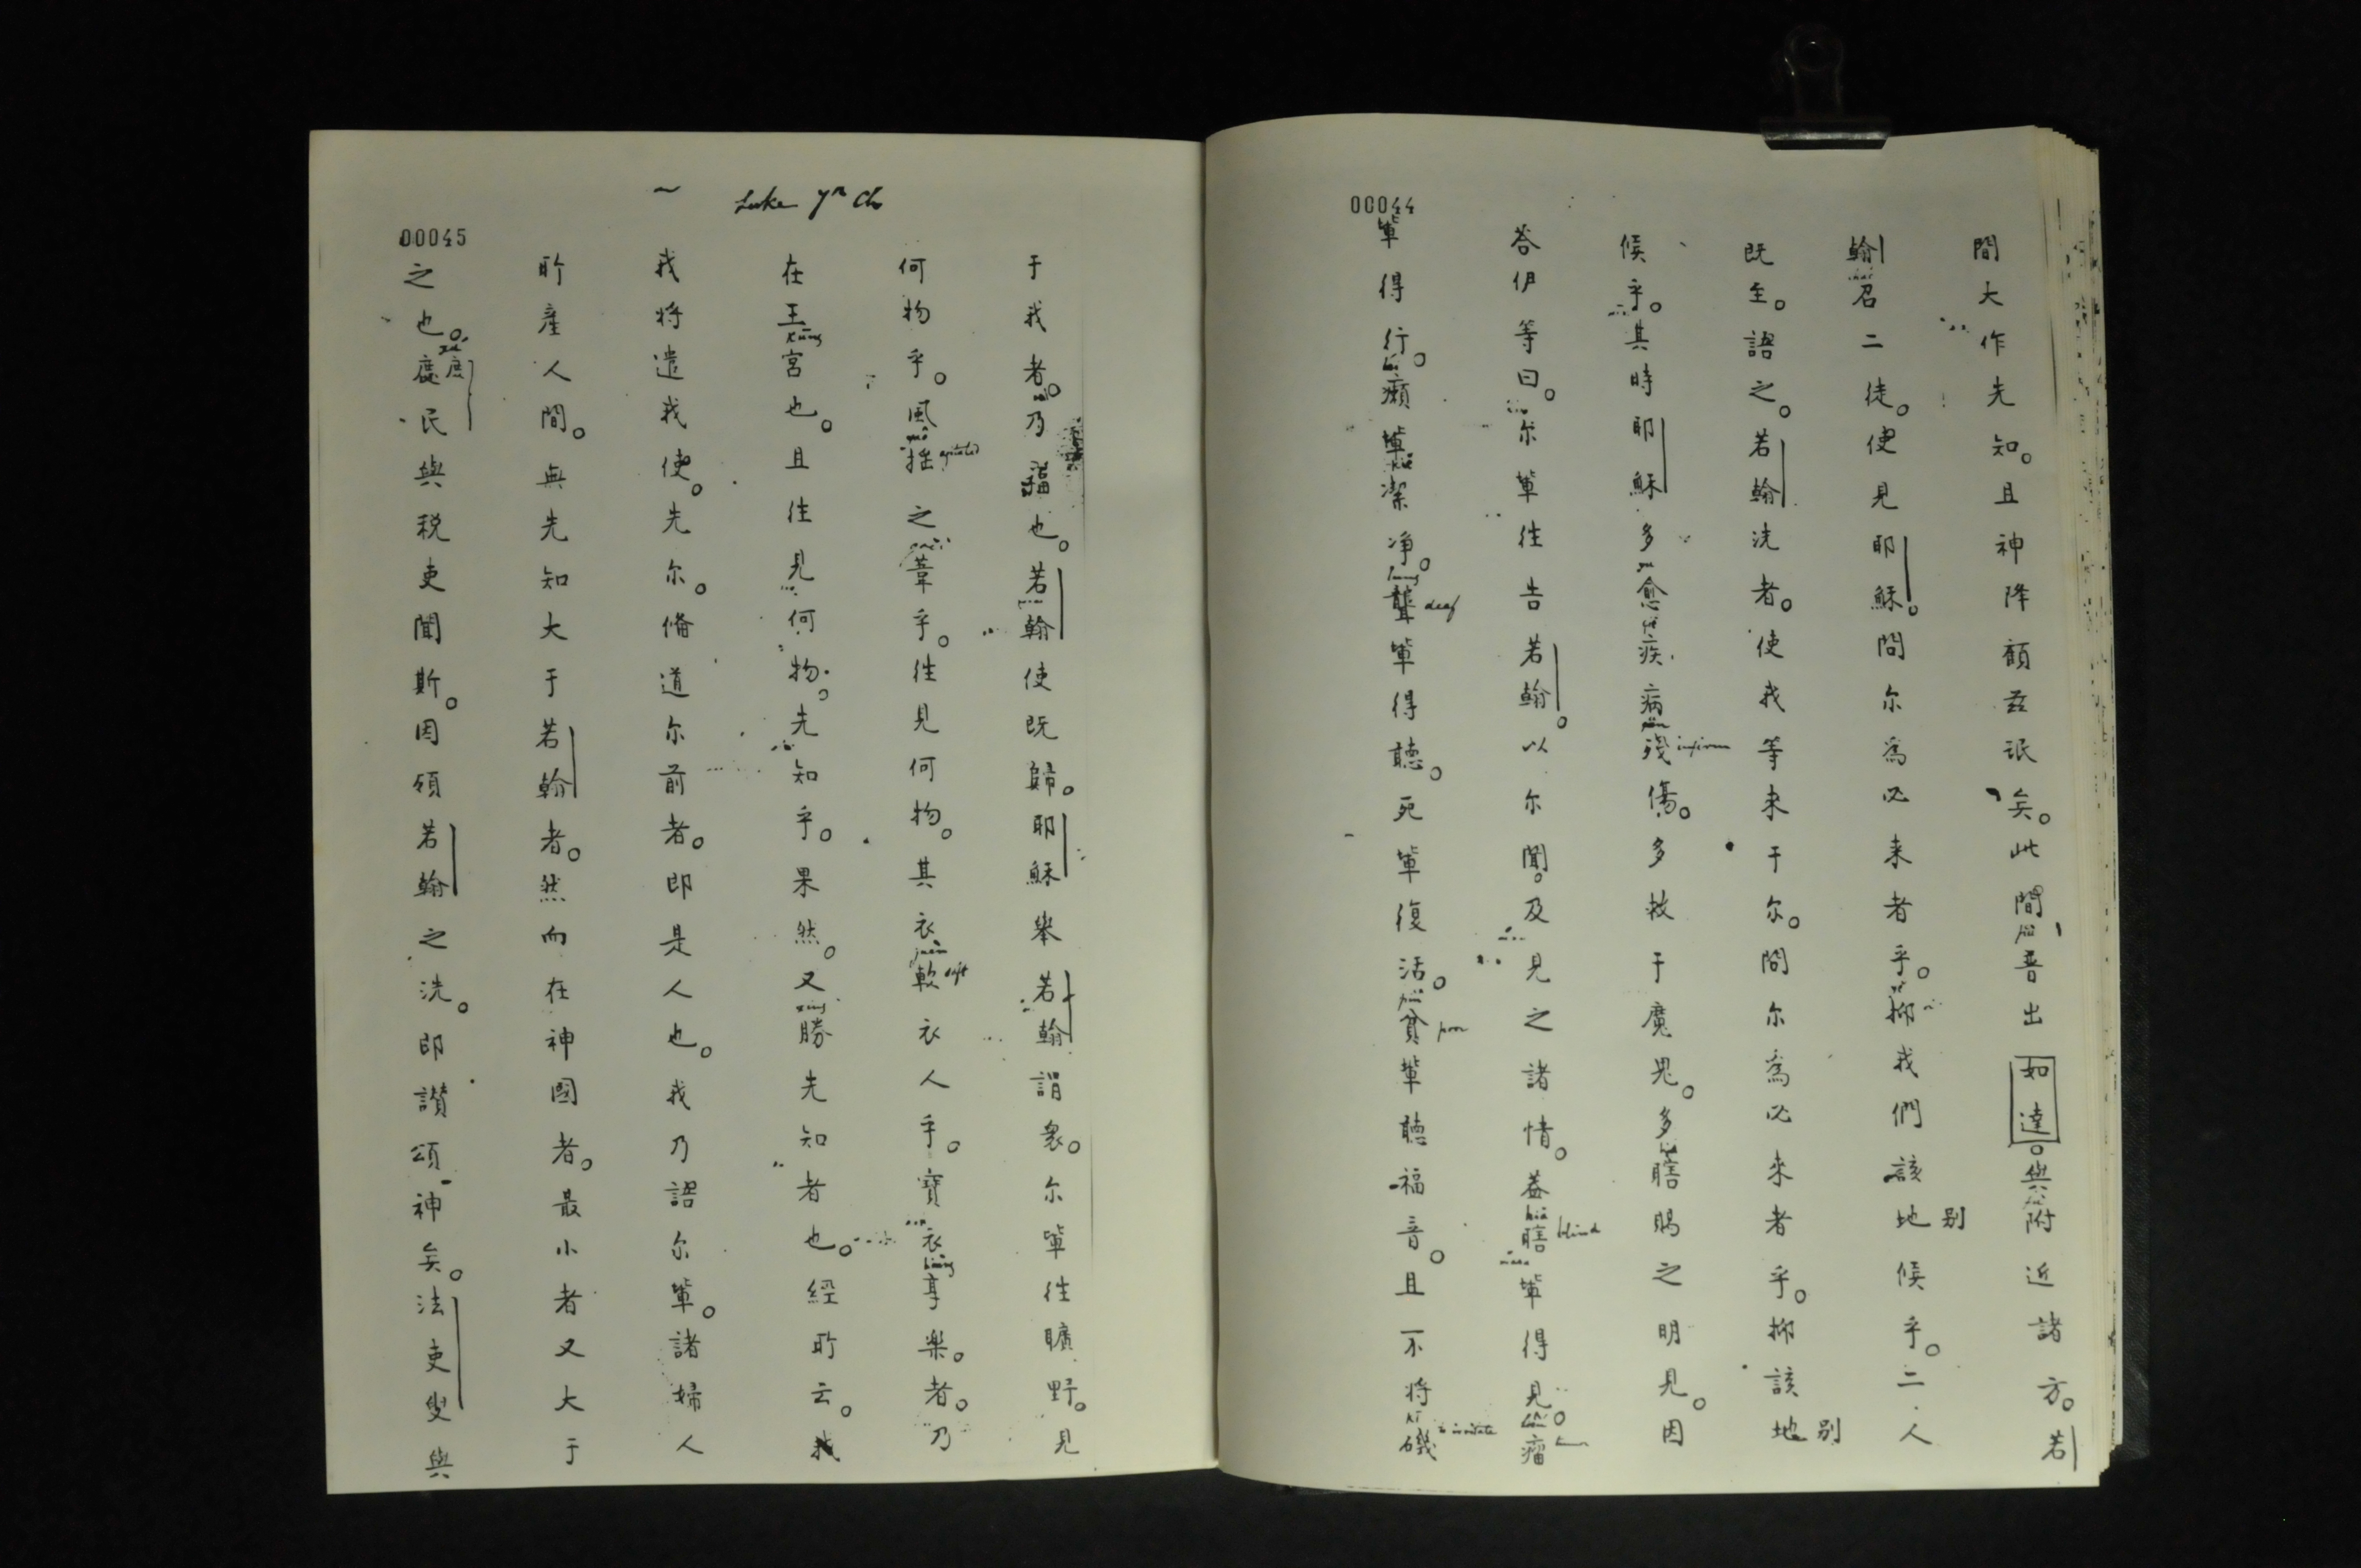 00044
間大作先知。且神降顧茲氓矣。此間普出如達。與附近諸方。若
翰召二徒。使見耶穌。問尔為必来者乎。抑我們該別地候乎。二人
既至。語之。若翰洗者。使我等来于尔。問尔為必来者乎。抑該別地
候乎。其時耶穌多愈疾病殘傷。多救于魔鬼。多瞎賜之明見。因
答伊等曰。尔軰往告若翰。以尔聞。及見之諸情。葢瞎軰得見。瘤
軰得行。癩軰潔净。聾軰得聽。死軰復活。貧軰聽福音。且不将磯
infirm
blind
deaf
poor
to irritate
Luke 7th Ch
00045
于我者。乃福也。若翰使既歸。耶穌舉若翰謂衆。尔軰往曠野。見
何物乎。風揺之葦乎。往見何物。其衣軟衣人乎。寶衣享楽。者。乃
在王宮也。且往見何物。先知乎。果然。又勝先知者也。經所云。我
我将遣我使。先尔。俻道尔前者。即是人也。我乃語尔軰。諸婦人
所產人間。無先知大于若翰者。然而在神國者。最小者又大于
之也。庶民與税吏聞斯。因領若翰之洗。即讃頌神矣。法吏叟與
agitated
soft